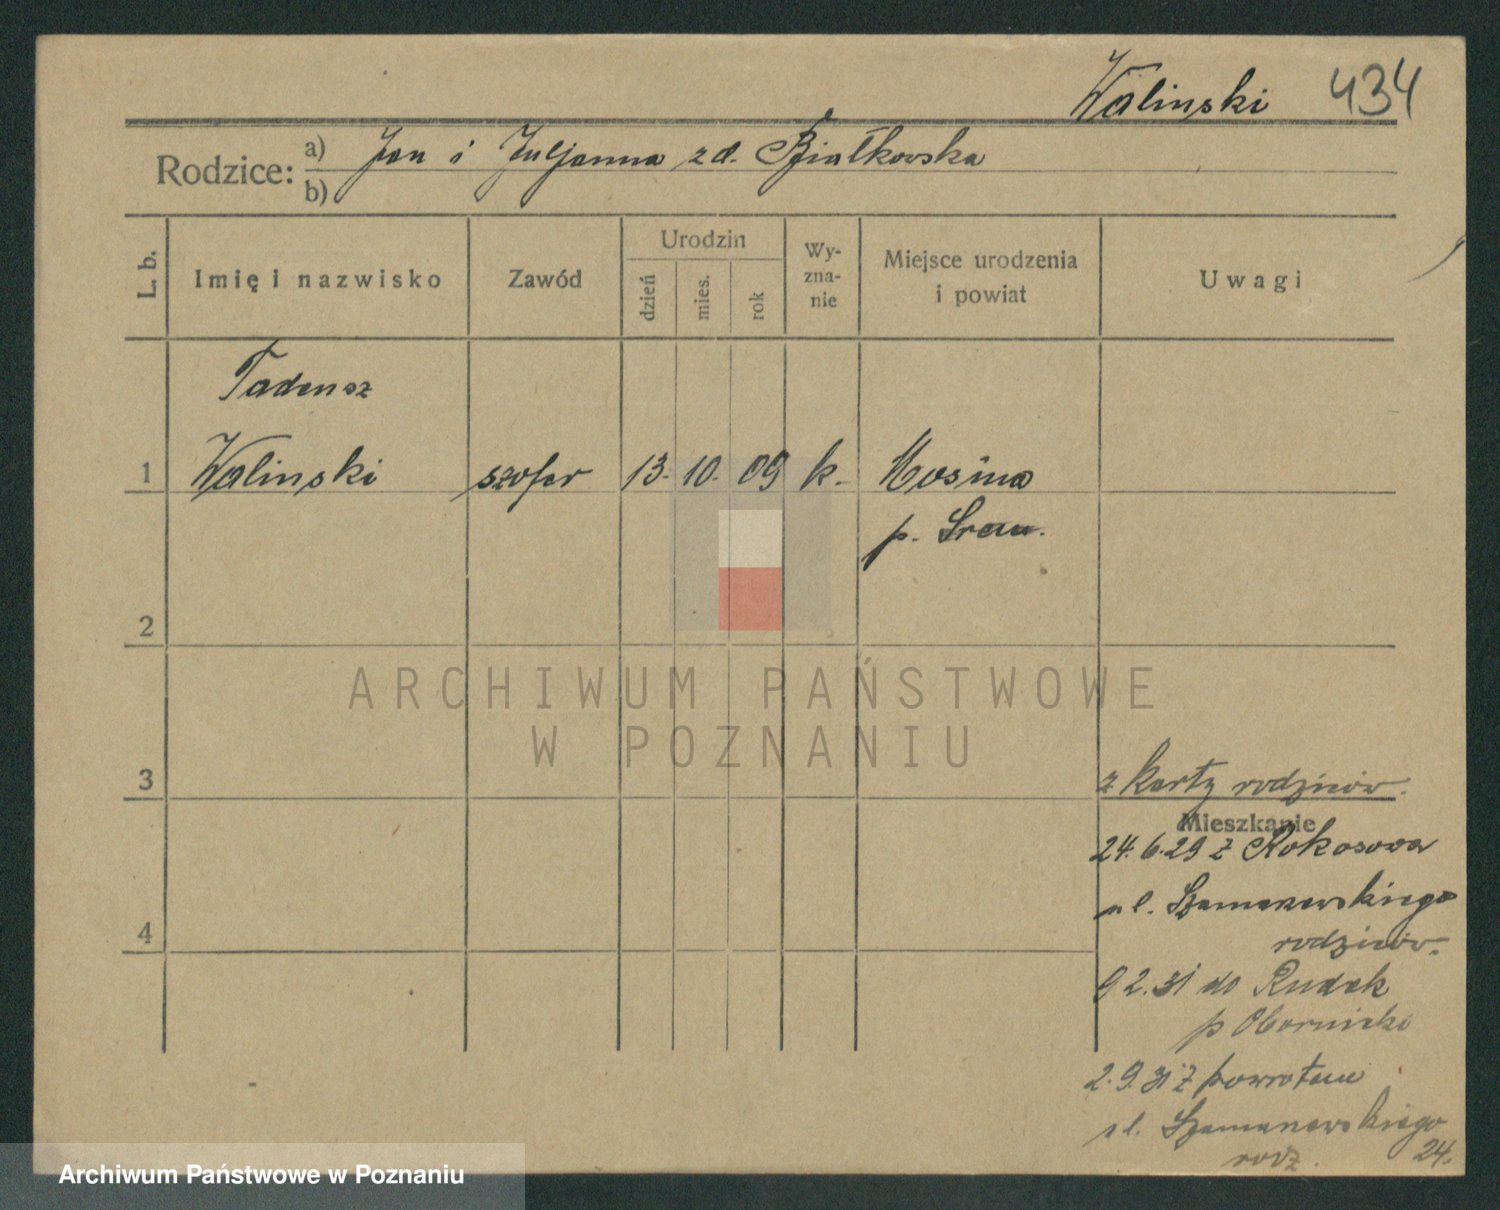 Walinski 434
Rodzice: a) Jan i Juljanna zd. Białkowska
b)
L. b. Imię i nazwisko Zawód Urodzin dzień mies. rok Wyznanie Miejsce urodzenia i powiat Uwagi
Tadeusz
1 Walinski szofer 13. 10. 09 k. Mosina
p. Srem.
2
ARCHIWUM PAŃSTWOWE
W POZNANIU
3 z karty rodziców.
Mieszkanie
24.6.29 z Rokosowa
ul. Szamarzewskiego
4 rodziców.
9 2.31 do Rudek
p Obornicki
2.9.31 z powrotem
ul. Szamarzewskiego
24.
rodz.
Archiwum Państwowe w Poznaniu